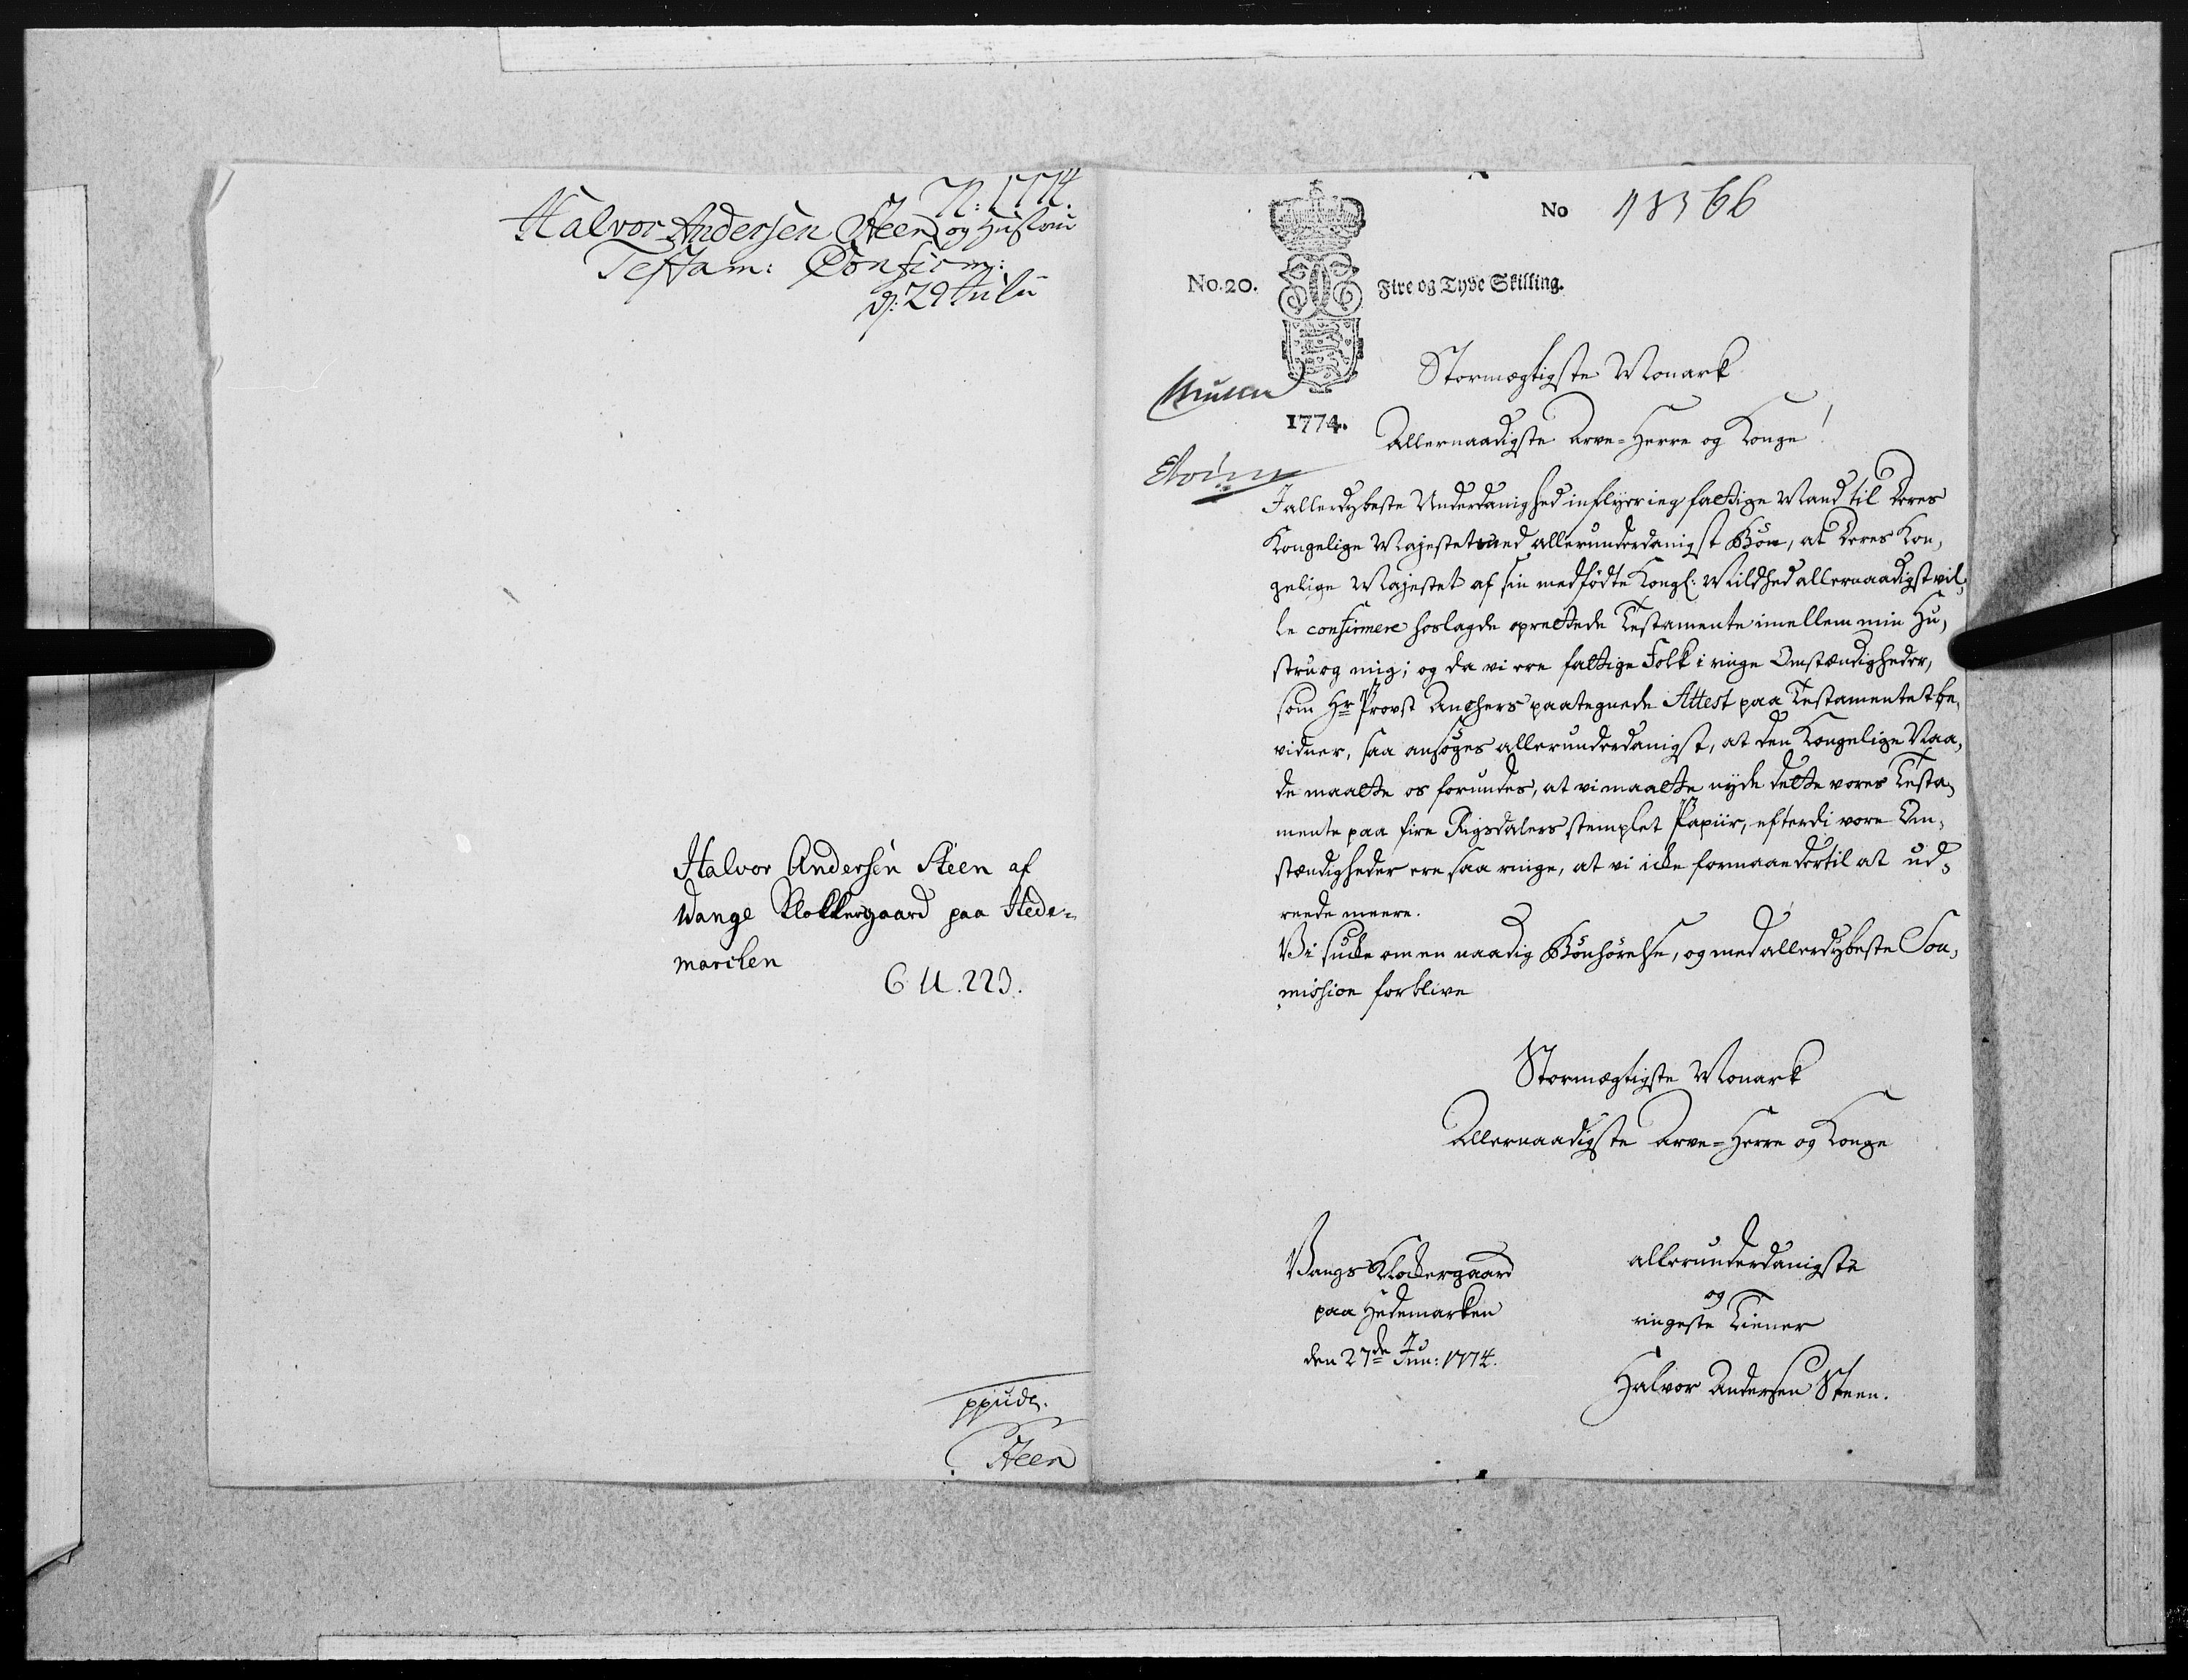 N: 1774.
Halvor Andersen Steen og Hustrue
Testam: Confirm:
d: 29 Julii
Halvor Andersen Steen af
Wange Klokkergaard paa Hede-
marchen
G. U. 223.
Steen
No 48366
No. 20. Fire og Tyve Skilling.
1774.
Stormægtigste Monark
Allernaadigste Arve-Herre og Konge!
I allerdybeste Underdanighed indflyer ieg fattige Mand til Deres
Kongelige Majestet med allerunderdanigst Bön, at Deres Kon,
gelige Majestet af sin medfödte Kongl: Mildhed allernaadigst vil,
le confirmere hoslagde oprettede Testamente imellem min Hu,
stru og mig; og da vi ere fattige Folk i ringe Omstændigheder,
som Hr Provst Anchers paategnede Attest paa Testamentet be,
vidner, saa ansöges allerunderdanigst, at den Kongelige Naa,
de maatte os forundes, at vi maatte nyde dette vores Testa,
mente paa fire Rigsdalers stemplet Papiir, efterdi vore Om,
stændigheder ere saa ringe, at vi icke formaae dertil at ud,
reede meere.
Vi sucke om en naadig Bönhörelse, og med allerdybeste Sou,
mission forblive
Stormægtigste Monark
Allernaadigste Arve-Herre og Konge
Vangs Klockergaard
paa Hedemarken
den 27de Jun: 1774.
allerunderdanigste
og
ringeste Tiener
Halvor Andersen Steen.